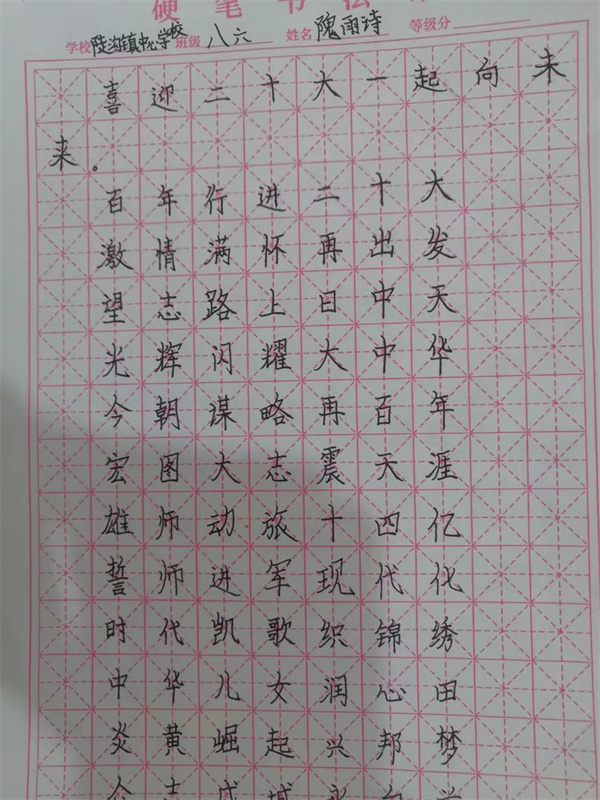 硬笔书法
学校 陡沟镇中心学校 班级 八六 姓名 隗雨诗 等级分
喜迎二十大一起向未
来。
百年行进二十大
激情满怀再出发
望志路上日中天
光辉闪耀大中华
今朝谋略再百年
宏图大志震天涯
雄师动旅十四亿
誓师进军现代化
时代凯歌织锦绣
中华儿女润心田
炎黄崛起兴邦梦
众志成城永